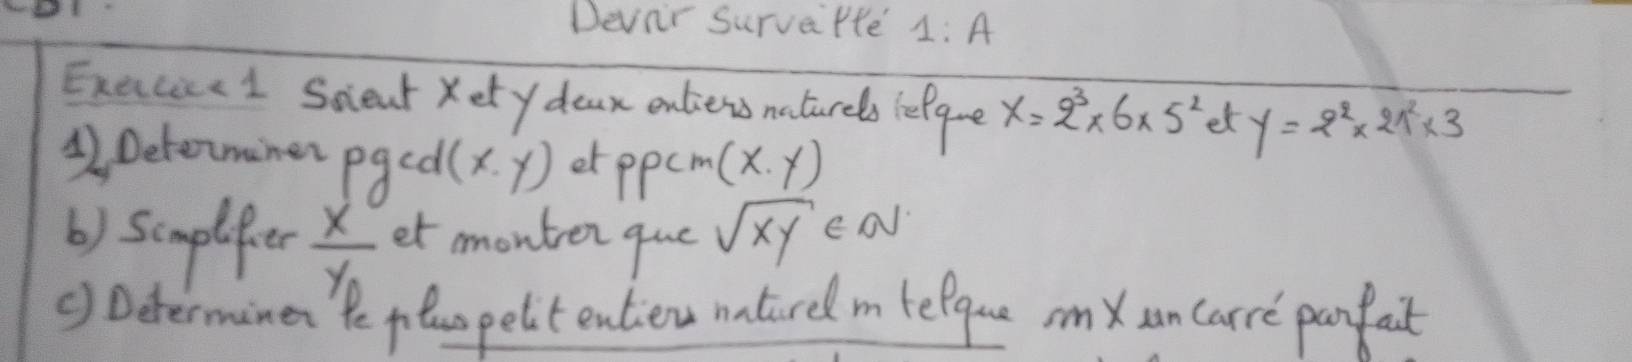 Devoir Surveillé 1: A
Exercice 1 Soient X et y deux entiers naturels telque X = 2³ x 6 x 5² et y = 2² x 21² x 3
1) Determiner pgcd(x.y) et ppcm(x.y)
b) Simplifier x/y et montrer que √xy ∈ ℕ
c) Determiner le plus petit entiers naturel m telque m X un carré parfait